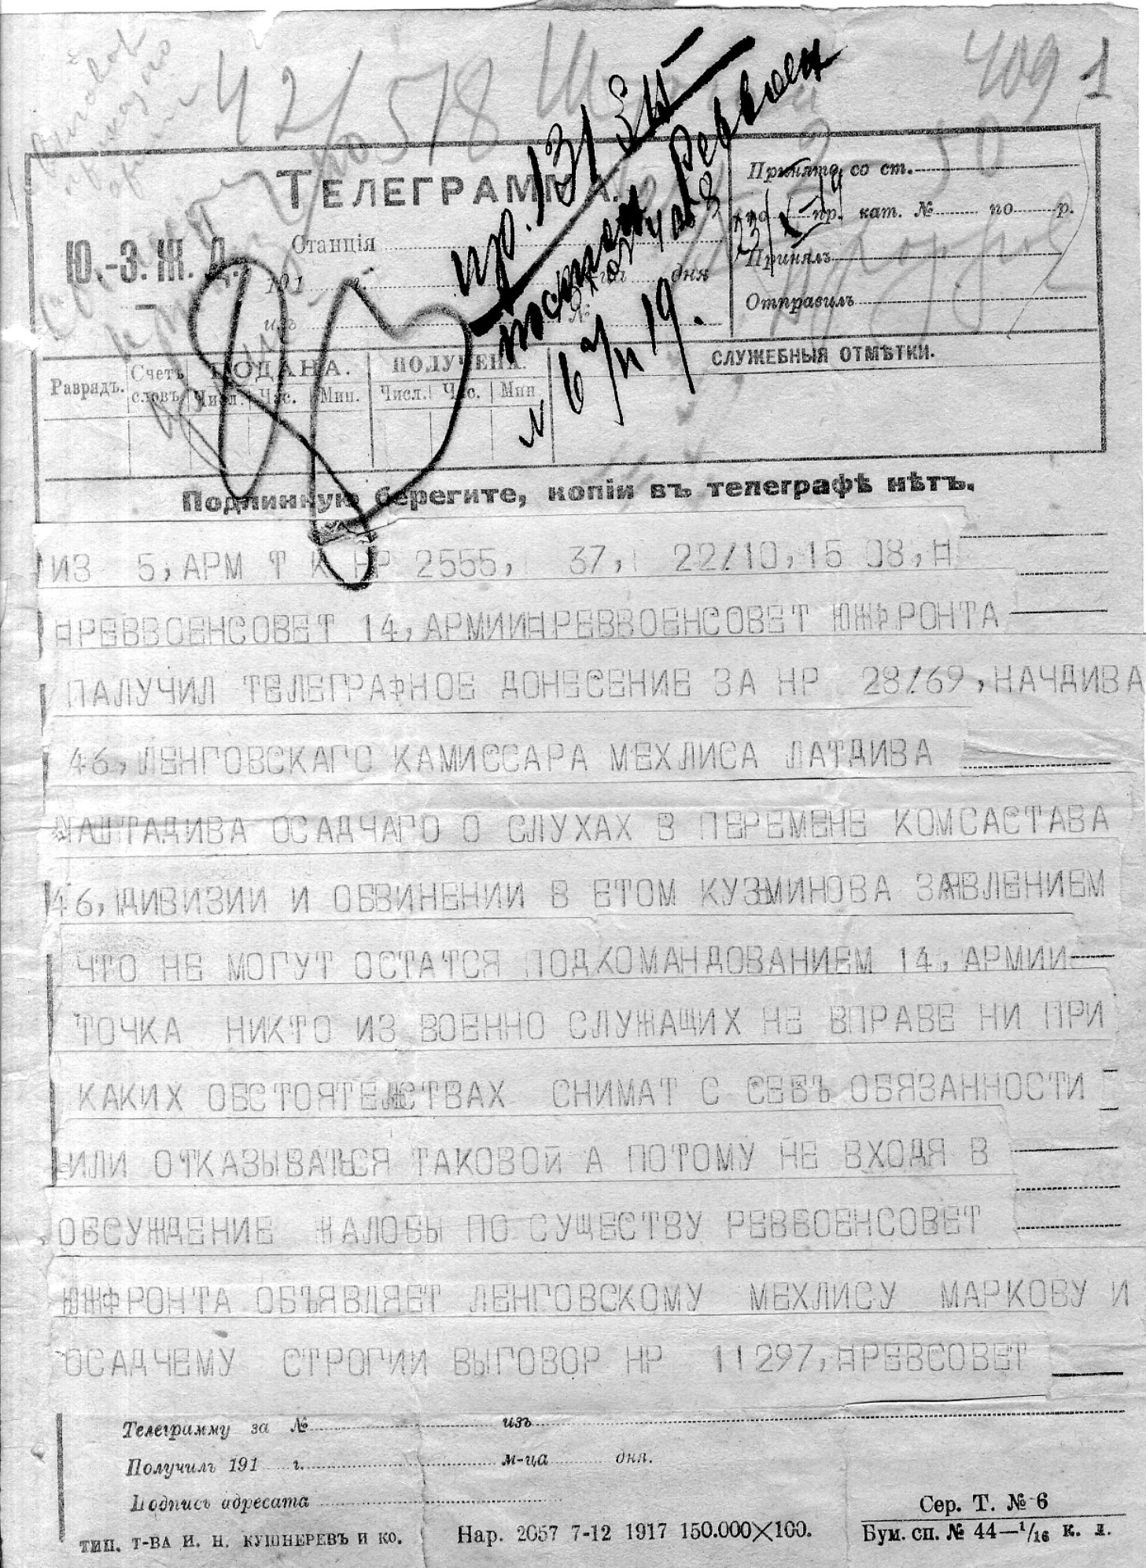 42/578
409 1
ТЕЛЕГРАММА.
Ю.-З.Ж.Д.
Станція
дня
№
Принята со ст.
пр. кат. № по р.
Принялъ
Отправилъ
пр. 131
Разрядъ.
Счетъ словъ
ПОДАНА.
Числ. Час. Мин.
ПОЛУЧЕНА.
Числ. Час. Мин
СЛУЖЕБНЫЯ ОТМѢТКИ.
Подлинную берегите, копіи въ телеграфѣ нѣтъ.
ИЗ 5,АРМ Т К НР 2555, 37, 22/10,15 08,Н
ЯРЕВВОЕНСОВЕТ 14,АРМИИНРЕВВОЕНСОВЕТ ЮЖФРОНТА
ПАЛУЧИЛ ТЕЛЕГРАФНОЕ ДОНЕСЕНИЕ ЗА НР 28/69,НАЧДИВА
46,ЛЕНГОВСКАГО КАМИССАРА МЕХЛИСА ЛАТДИВА
НАШТАДИВА ОСАДЧАГО О СЛУХАХ В ПЕРЕМЕНЕ КОМСАСТАВА
46,ДИВИЗИИ И ОБВИНЕНИИ В ЕТОМ КУЗМИНОВА ЗАЯВЛЕНИЕМ
ЧТО НЕ МОГУТ ОСТАТСЯ ПОДКОМАНДОВАНИЕМ 14,АРМИИ
ТОЧКА НИКТО ИЗ ВОЕННО СЛУЖАЩИХ НЕ ВПРАВЕ НИ ПРИ
КАКИХ ОБСТОЯТЕЛЬСТВАХ СНИМАТ С СЕБЪ ОБЯЗАННОСТИ
ИЛИ ОТКАЗЫВАТЬСЯ ТАКОВОЙ А ПОТОМУ НЕ ВХОДЯ В
ОБСУЖДЕНИЕ ЖАЛОБЫ ПО СУЩЕСТВУ РЕВВОЕНСОВЕТ
ЮЖФРОНТА ОБЪЯВЛЯЕТ ЛЕНГОВСКОМУ МЕХЛИСУ МАРКОВУ И
ОСАДЧЕМУ СТРОГИИ ВЫГОВОР НР 11297,ЯРЕВСОВЕТ
Телеграмму за № изъ
Получилъ 191 г. м-ца дня.
Подпись адресата
ТИП. Т-ВА И. Н. КУШНЕРЕВЪ И КО.
Нар. 2057 7-12 1917 150.000×100.
Сер. Т. № 6
Бум. сп. № 44—1/16 к. л.